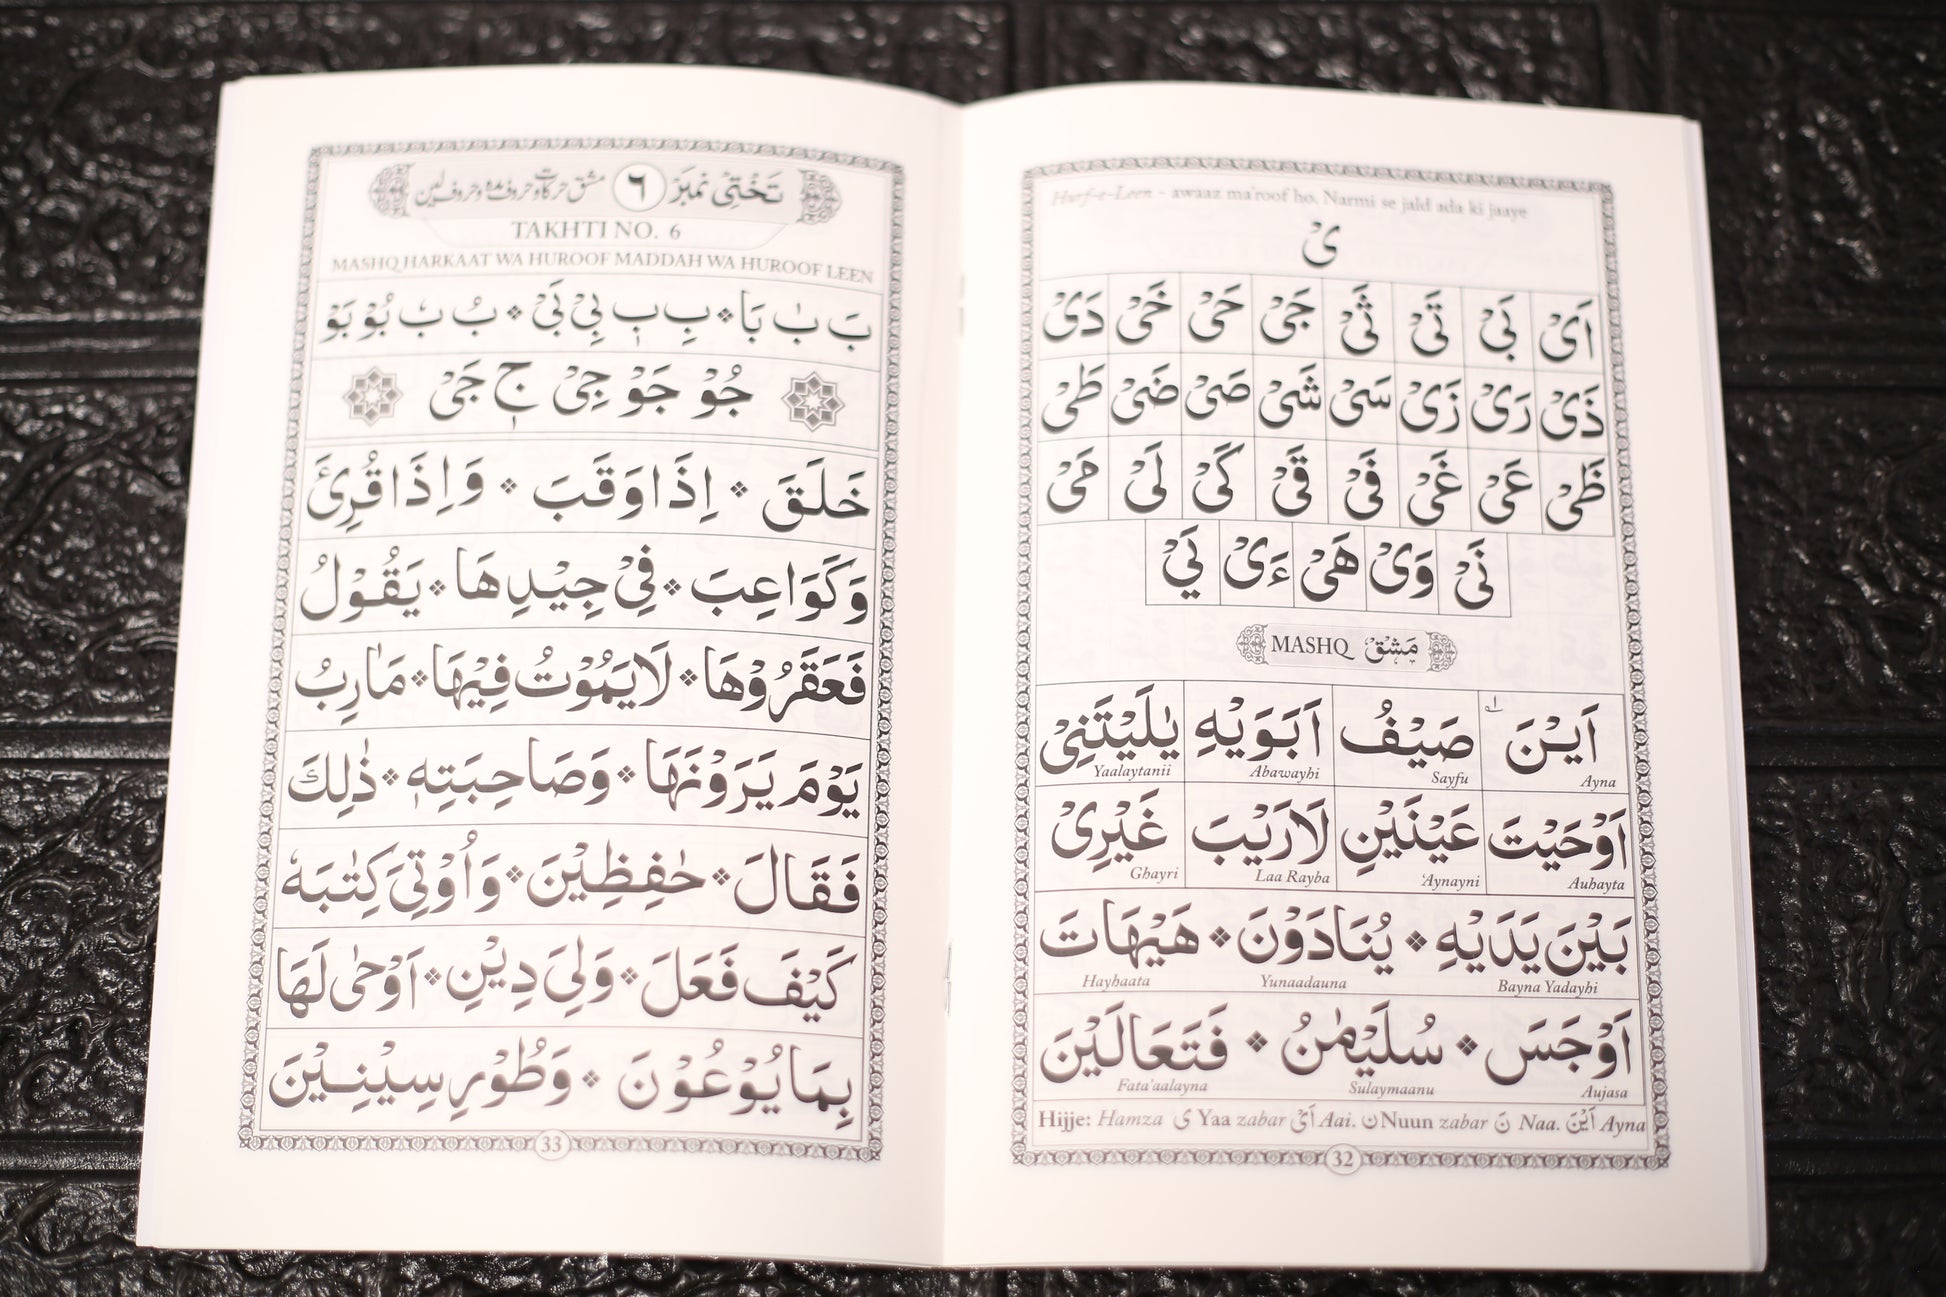 Hurf-e-Leen - awaaz ma'roof ho. Narmi se jald ada ki jaaye
یْ
اَیْ بَیْ تَیْ ثَیْ جَیْ حَیْ خَیْ دَیْ
ذَیْ رَیْ زَیْ سَیْ شَیْ صَیْ ضَیْ طَیْ
ظَیْ عَیْ غَیْ فَیْ قَیْ کَیْ لَیْ مَیْ
نَیْ وَیْ هَیْ ءَیْ یَیْ
MASHQ مَشْق
اَیْنَ صَیْفُ اَبَوَیْهِ یٰلَیْتَنِیْ
Ayna Sayfu Abawayhi Yaalaytanii
اَوْحَیْتَ عَیْنَیْنِ لَارَیْبَ غَیْرِیْ
Auhayta 'Aynayni Laa Rayba Ghayri
بَیْنَ یَدَیْهِ ❖ یُنَادَوْنَ ❖ هَیْهَاتَ
Bayna Yadayhi Yunaadauna Hayhaata
اَوْجَسَ ❖ سُلَیْمٰنُ ❖ فَتَعَالَیْنَ
Aujasa Sulaymaanu Fata'aalayna
Hijje: Hamza ی Yaa zabar اَیْ Aai. ن Nuun zabar نَ Naa. اَیْنَ Ayna
32
تَخْتِیْ نمبَرْ ٦ مشق حرکات و حروف مدہ و حروف لین
TAKHTI NO. 6
MASHQ HARKAAT WA HUROOF MADDAH WA HUROOF LEEN
بَ بٰ بَا ❖ بِ بٖ بِیْ بَیْ ❖ بُ بٗ بُوْ بَوْ
جُوْ جَوْ جِیْ جٖ جَیْ
خَلَقَ ❖ اِذَا وَقَبَ ❖ وَاِذَا قُرِئَ
وَکَوَاعِبَ ❖ فِیْ جِیْدِهَا ❖ یَقُوْلُ
فَعَقَرُوْهَا ❖ لَا یَمُوْتُ فِیْهَا ❖ مَاٰرِبُ
یَوْمَ یَرَوْنَهَا ❖ وَصَاحِبَتِهٖ ❖ ذٰلِكَ
فَقَالَ ❖ حٰفِظِیْنَ ❖ وَاُوْتِیَ کِتٰبَهٗ
کَیْفَ فَعَلَ ❖ وَلِیَ دِیْنِ ❖ اَوْحٰی لَهَا
بِمَا یُوْعُوْنَ ❖ وَطُوْرِ سِیْنِیْنَ
33